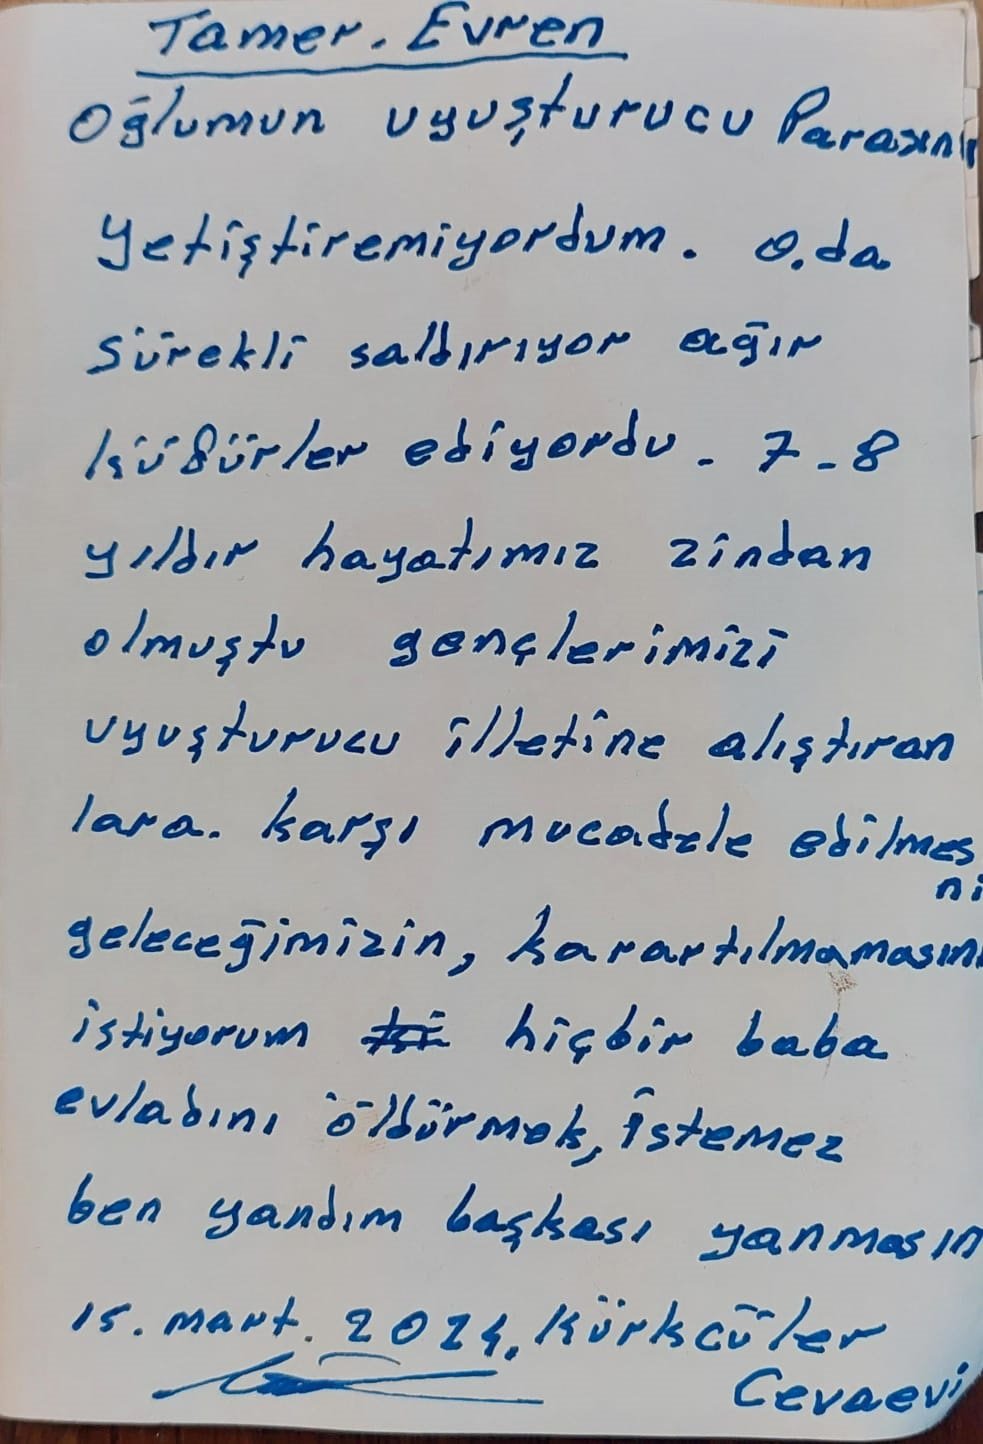 Tamer. Evren
Oğlumun uyuşturucu Parasını
yetiştiremiyordum. O.da
Sürekli saldırıyor ağır
küfürler ediyordu. 7-8
yıldır hayatımız zindan
olmuştu gençlerimizi
uyuşturucu illetine alıştıran
lara. karşı mucadele edilmes
ni
geleceğimizin, karartılmamasını
istiyorum hiçbir baba
evladını öldürmek, istemez
ben yandım başkası yanmasın
15. mart. 2024. Kürkcüler
Cevaevi